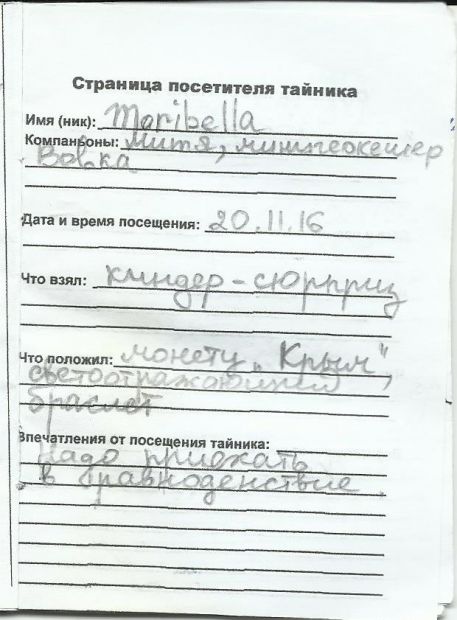 Страница посетителя тайника
Имя (ник): Maribella
Компаньоны: Митя, минигеокешер
Вовка
Дата и время посещения: 20.11.16
Что взял: киндер-сюрприз
Что положил: монету „Крым",
светоотражающий
браслет
Впечатления от посещения тайника:
Надо приехать
в равноденствие.